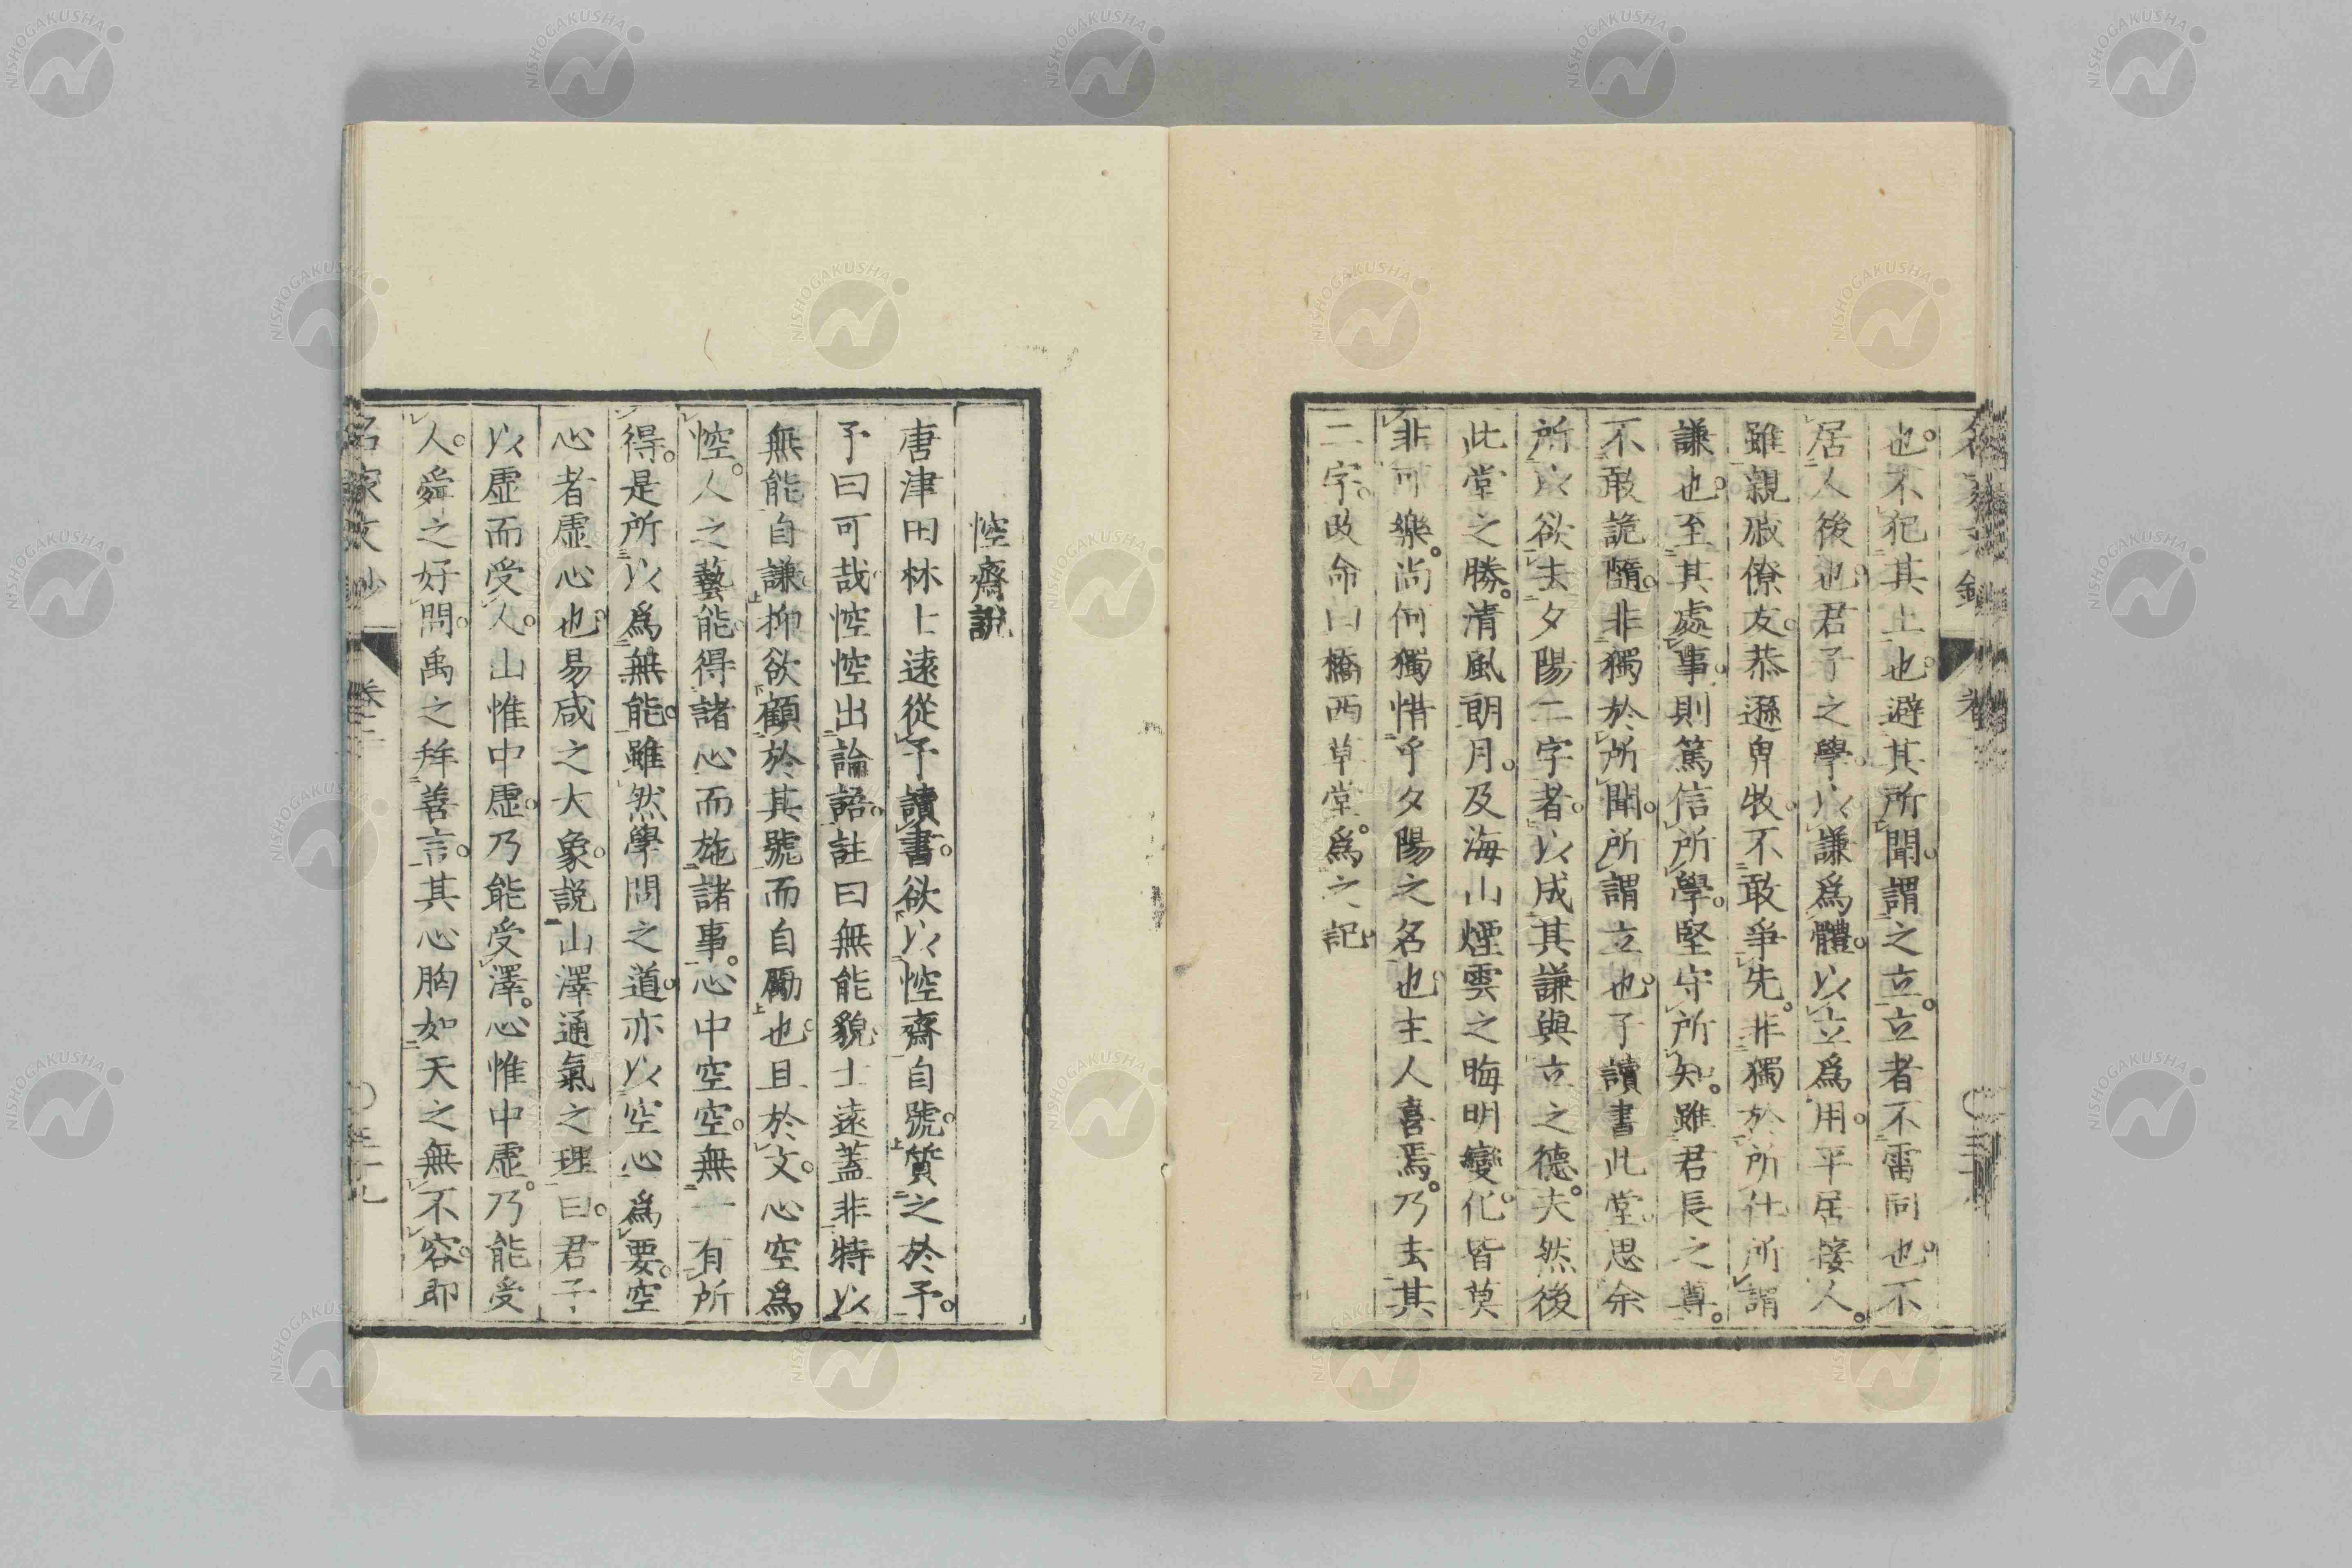 也。不犯其上也。避其所聞。謂之立。立者不雷同也。不
居人後也。君子之學。以謙爲體。以立爲用。平居接人。
雖親戚僚友。恭遜卑牧。不敢爭先。非獨於所仕所謂
謙也。至其處事。則篤信所學。堅守所知。雖君長之尊。
不敢詭隨。非獨於所聞。所謂立也。予讀書此堂。思余
所以欲去夕陽二字者。以成其謙與立之德。夫然後
此堂之勝。清風朗月。及海山煙雲之晦明變化。皆莫
非可樂。尚何獨惜乎夕陽之名也。主人喜焉。乃去其
二字。改命曰橋西草堂。爲之記
悾齋說
唐津田林士遠從予讀書。欲以悾齋自號。質之於予。
予曰可哉。悾悾出論語。註曰無能貌。士遠蓋非特以
無能自謙。抑欲顧於其號而自勵也。且於文。心空爲
悾。人之藝能。得諸心而施諸事。心中空空。無一有所
得。是所以爲無能。雖然學問之道。亦以空心爲要。空
心者虛心也。易咸之大象。説山澤通氣之理曰。君子
以虛而受人。山惟中虛。乃能受澤。心惟中虛。乃能受
人。舜之好問。禹之拜善言。其心胸如天之無不容。即
名家文抄
卷二